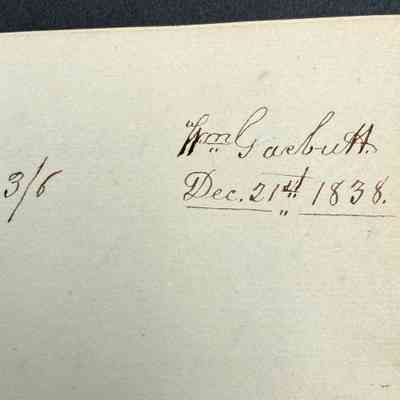 Wm Garbutt.
3/6
Dec. 21st 1838.